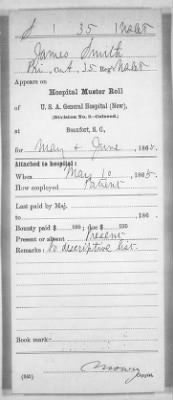 S 1 35
James Smith
Pri, 35 Reg't
Appears on
Hospital Muster Roll
of
U. S. A. General Hospital (New),
(Division No. 2—Colored,)
at
Beaufort, S. C.,
for May & June, 1865.
Attached to hospital:
When May 10, 1865.
How employed Patient
Last paid by Maj.
to , 186 .
Bounty paid $ 100; due $ 100
Present or absent Present
Remarks: No descriptive list.
Book mark:
(545)